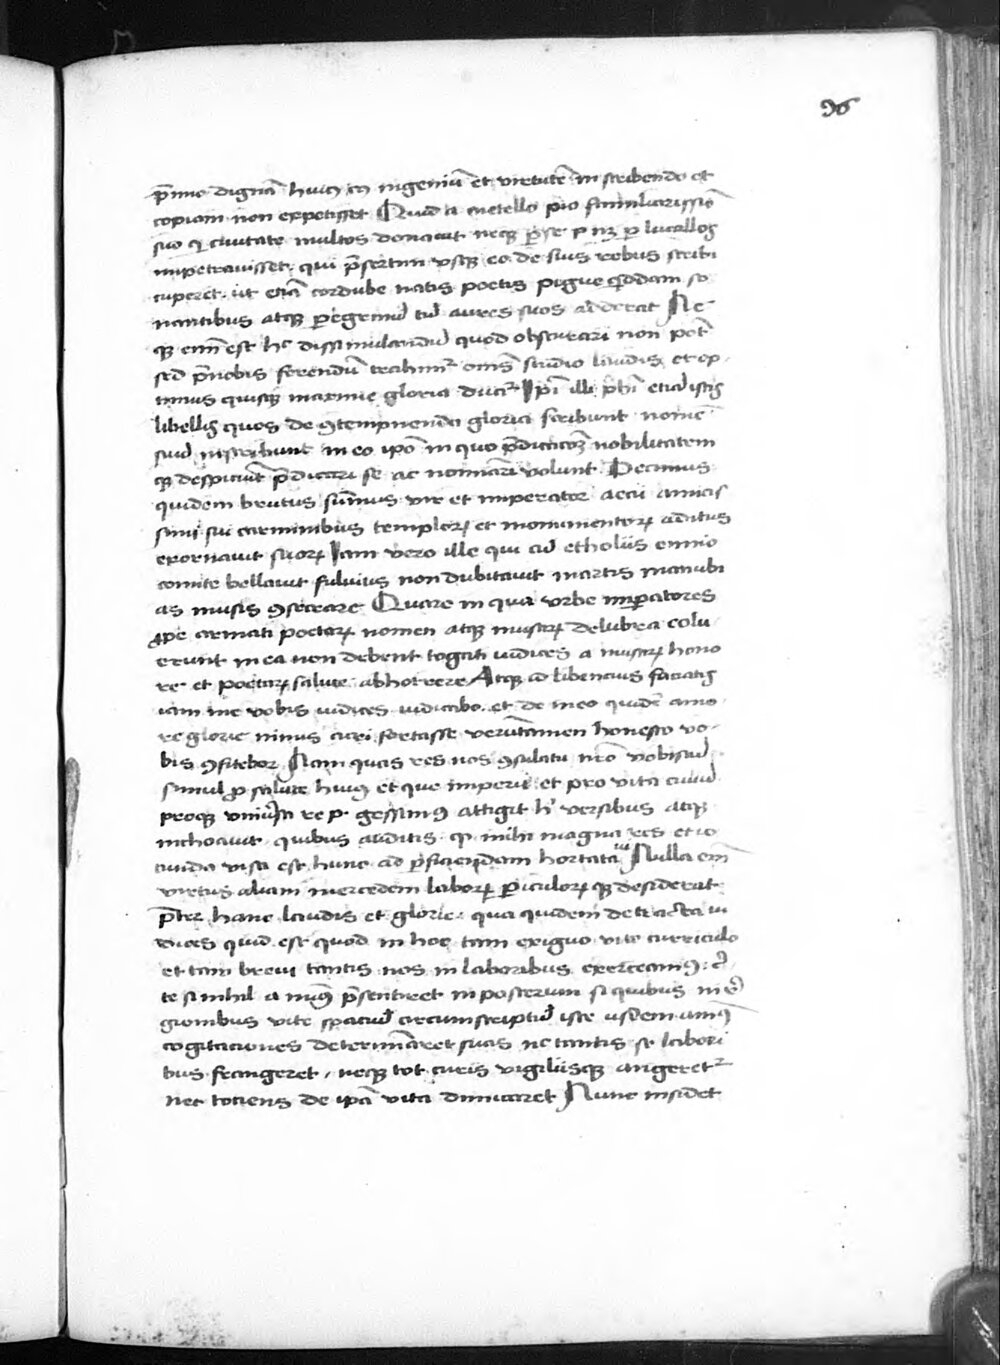 96
p̄mio dignā huiꝰ ꝯ ingeniū et virtutē in scribendo et
copiam non expetisset Quid a metello pio familiarissio
suo q̣ civitate multos donavit neqꝫ ꝑ se ꝑ nꝫ ꝑ lucullos
impetravisset qui p̄sertim usqꝫ eo de suis rebus scribi
cuperet ut etiā cordube natis poetis pigue q̄ddam so
nantibus atqꝫ ꝑegrinū tn̄ aures suos adderat Ne
qꝫ enī est hͨ dissimulandū quod obscurari non potͭ
sed p̄nobis ferendū trahimͬ om̄s studio laudis et op
timus quisqꝫ maxime gloria ducitͬ Ip̄i illi ph̄i etiā istis
libellis quos de ꝯtempnenda gloria scribunt nomē
suū inscribunt in eo ip̄o in quo p̄dicacōꝫ nobilitatem
qꝫ despiciūt p̄dicari se ac nominari volunt Decimus
quidem brutus sūmus vir et imperator accii amicis
simi sui carminibus temploꝝ et monumentoꝝ aditus
exornavit suoꝝ Iam vero ille qui cū etholiis ennio
comite bellavit fulvius non dubitavit martis manubi
as musis ꝯsecrare Quare in qua urbe imꝑatores
ꝓpe armati poetaꝝ nomen atqꝫ musaꝝ delubra colu
erunt in ea non debent togati iudices a musaꝝ hono
re et poetaꝝ salute abhorrere Atqꝫ id libencius faciatis
iam me vobis iudices iudicabo et de meo quidē amo
re glorie nimus acri fortasse verūtamen honesto vo
bis ꝯfitebor Nam quas res nos ꝯsulatu nr̄o vobiscū
simul ꝓ salute huiꝰ et que imperii et pro vita civiū
proqꝫ univ̄sa re p. gessimꝰ attigit hͥ versibus atqꝫ
inchoavit quibus auditis qꝫ mihi magna res et io
cunda visa est hunc ad ꝑficiendam hortatͣ Nulla enī
virtus aliam mercedem laboꝝ ꝑiculoꝝ qꝫ desiderat
p̄ter hanc laudis et glorie qua quidem detracta iu
dices quid est quod in hoc tam exiguo vite curriculo
et tam brevi tantis nos in laboribus exerceamꝰ
te si nihil animꝰ p̄sentiret in posterum si quibus in rē
gionibus vite spaciū circumscriptū iste usdem omnēs
cogitaciones determīaret suas nc tantis se labori
bus frangeret neqꝫ tot curis vigiliisqꝫ angeretͬ
nec tociens de ip̄a vita dimicaret Nunc insidet